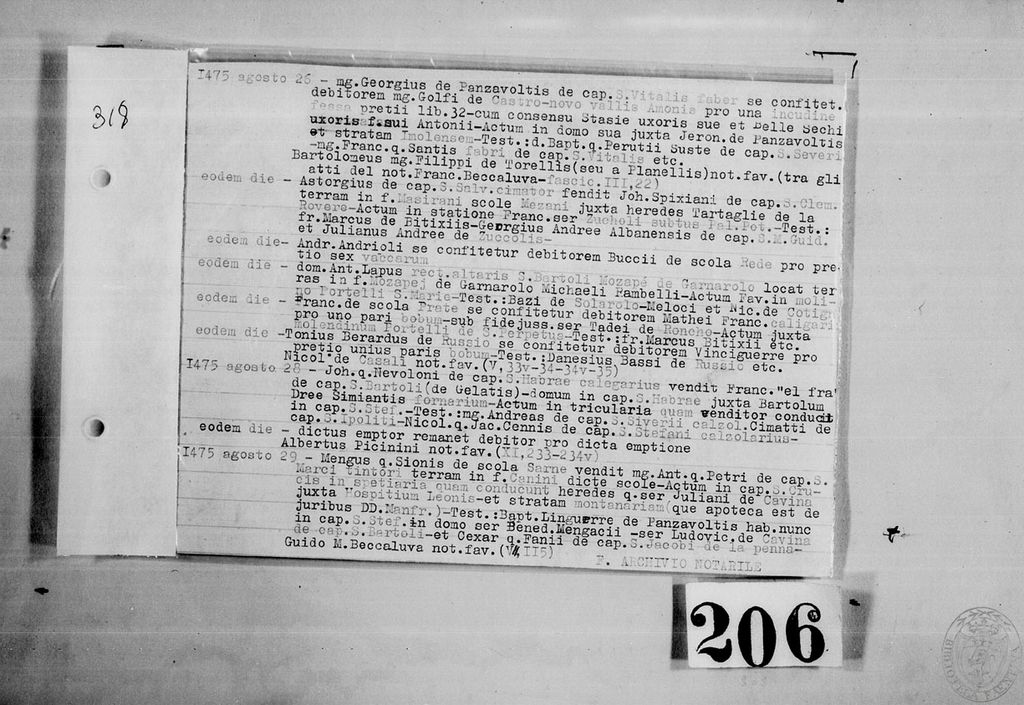 318
1475 agosto 26 - mg.Georgius de Panzavoltis de cap.S.Vitalis faber se confitet.
debitorem mg.Golfi de Castro-novo vallis Amonis pro una incudine
fessa pretii lib.32-cum consensu Stasie uxoris sue et Belle Sechi
uxoris f.sui Antonii-Actum in domo sua juxta Jeron.de Panzavoltis
et stratam Imolensem-Test.:d.Bapt.q.Perutii Suste de cap.S.Severi
-mg.Franc.q.Santis fabri de cap.S.Vitalis etc.
Bartolomeus mg.Filippi de Torellis(seu a Planellis)not.fav.(tra gli
atti del not.Franc.Beccaluva-fascic.III,22)
eodem die - Astorgius de cap.S.Salv.cimator fendit Joh.Spixiani de cap.S.Clem.
terram in f.Masirani scole Mezani juxta heredes Tartaglie de la
Rovere-Actum in statione Franc.ser Zucholi subtus Pal.Pot.-Test.:
fr.Marcus de Bitixiis-Georgius Andree Albanensis de cap.S.M.Guid.
et Julianus Andree de Zuccolis-
eodem die- Andr.Andrioli se confitetur debitorem Buccii de scola Rede pro pre-
tio sex vaccarum
eodem die - dom.Ant.Lapus rect.altaris S.Bartoli Mozapé de Garnarolo locat ter
ras in f.Mozapej de Garnarolo Michaeli Rambelli-Actum Fav.in moli-
no Portelli S.Marie-Test.:Bazi de Solarolo-Meloci et Nic.de Cotign
eodem die - Franc.de scola Prate se confitetur debitorem Mathei Franc.caligari
pro uno pari bobum-sub fidejuss.ser Tadei de Roncho-Actum juxta
molendinum Portelli de S.Perpetus-Test.:fr.Marcus Bitixii etc.
eodem die -Tonius Berardus de Russio se confitetur debitorem Vinciguerre pro
pretio unius paris bobum-Test.:Danesius Bassi de Russio etc.
Nicol'de Casali not.fav.(V,33v-34-34v-35)
1475 agosto 28 - Joh.q.Nevoloni de cap.S.Habrae calegarius vendit Franc."el fra"
de cap.S.Bartoli(de Gelatis)-domum in cap.S.Habrae juxta Bartolum
Dree Simiantis fornarium-Actum in tricularia quam venditor conducit
in cap.S.Stef.-Test.:mg.Andreas de cap.S.Siverii calzol.Cimatti de
cap.S.Ipoliti-Nicol.q.Jac.Cennis de cap.S.Stefani calzolarius-
eodem die - dictus emptor remanet debitor pro dicta emptione
Albertus Picinini not.fav.(XI,233-234v)
1475 agosto 29 - Mengus q.Sionis de scola Sarne vendit mg.Ant.q.Petri de cap.S.
Marci tintori terram in f.Canini dicte scole-Actum in cap.S.Cru-
cis in spetiaria quam conducunt heredes q.ser Juliani de Cavina
juxta Hospitium Leonis-et stratam montanariam(que apoteca est de
juribus DD.Manfr.)-Test.:Bapt.Linguerre de Panzavoltis hab.nunc
in cap.S.Stef.in domo ser Bened.Mengacii -ser Ludovic.de Cavina
de cap.S.Bartoli-et Cexar q.Fanii de cap.S.Jacobi de la penna-
Guido M.Beccaluva not.fav.(VI,115)
F. ARCHIVIO NOTARILE
206